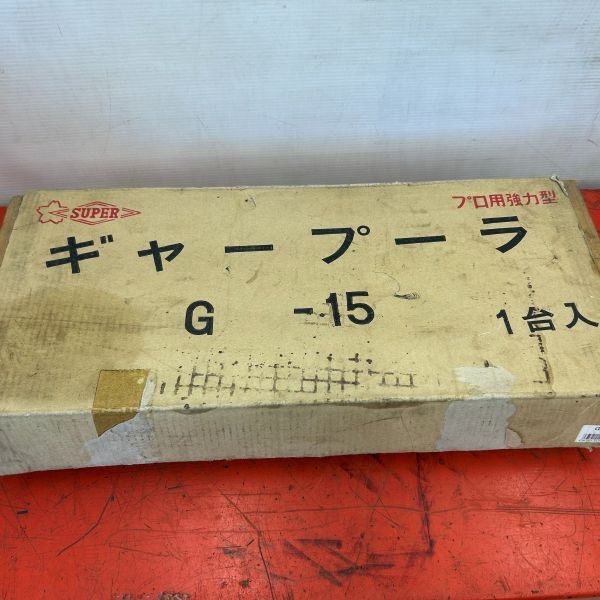 SUPER
プロ用強力型
ギャープーラ
G -15
1台入